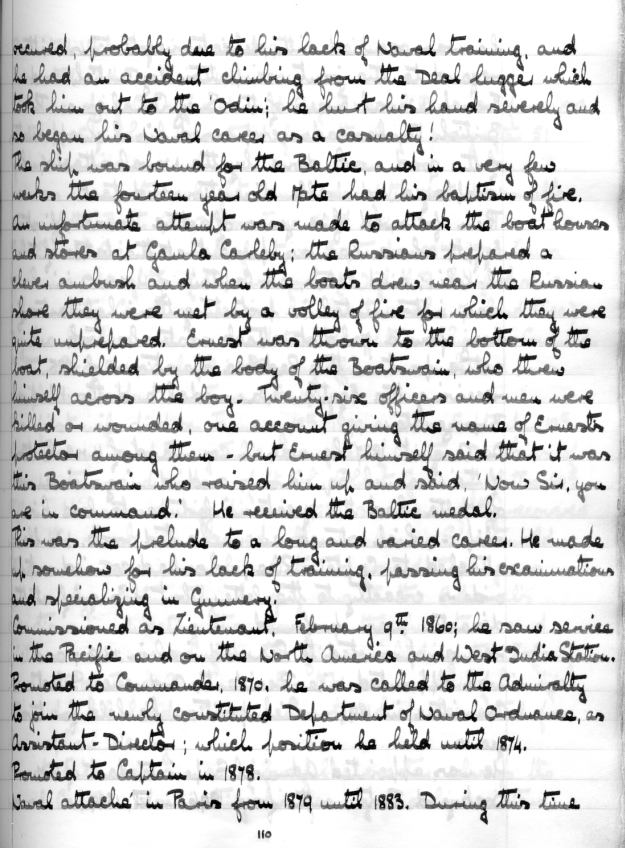 occured, probably due to his lack of Naval training, and
he had an accident climbing from the Deal lugger which
took him out to the 'Odin; he hurt his hand severely and
so began his Naval career as a casualty!
The ship was bound for the Baltic, and in a very few
weeks the fourteen year old had his baptism of fire.
An unfortunate attempt was made to attack the boat houses
and stores at Gamla Carleby; the Russians prepared a
clever ambush and when the boats drew near the Russian
shore they were met by a volley of fire for which they were
quite unprepared. Ernest was thrown to the bottom of the
boat, shielded by the body of the Boatswain, who threw
himself across the boy. Twenty-six officers and men were
killed or wounded, one account giving the name of Ernest's
protector among them - but Ernest himself said that it was
this Boatswain who raised him up and said, 'Now Sir, you
are in command.' He received the Baltic medal.
This was the prelude to a long and varied career. He made
up somehow for his lack of training, passing his examinations
and specializing in Gunnery.
Commissioned as Lieutenant, February 9th 1860; he saw service
in the Pacific and on the North America and West India Station.
Promoted to Commander, 1870, he was called to the Admiralty
to join the newly constituted Department of Naval Ordnance, as
Assistant-Director; which position he held until 1874.
Promoted to Captain in 1878.
Naval attaché in Paris from 1879 until 1883. During this time
110